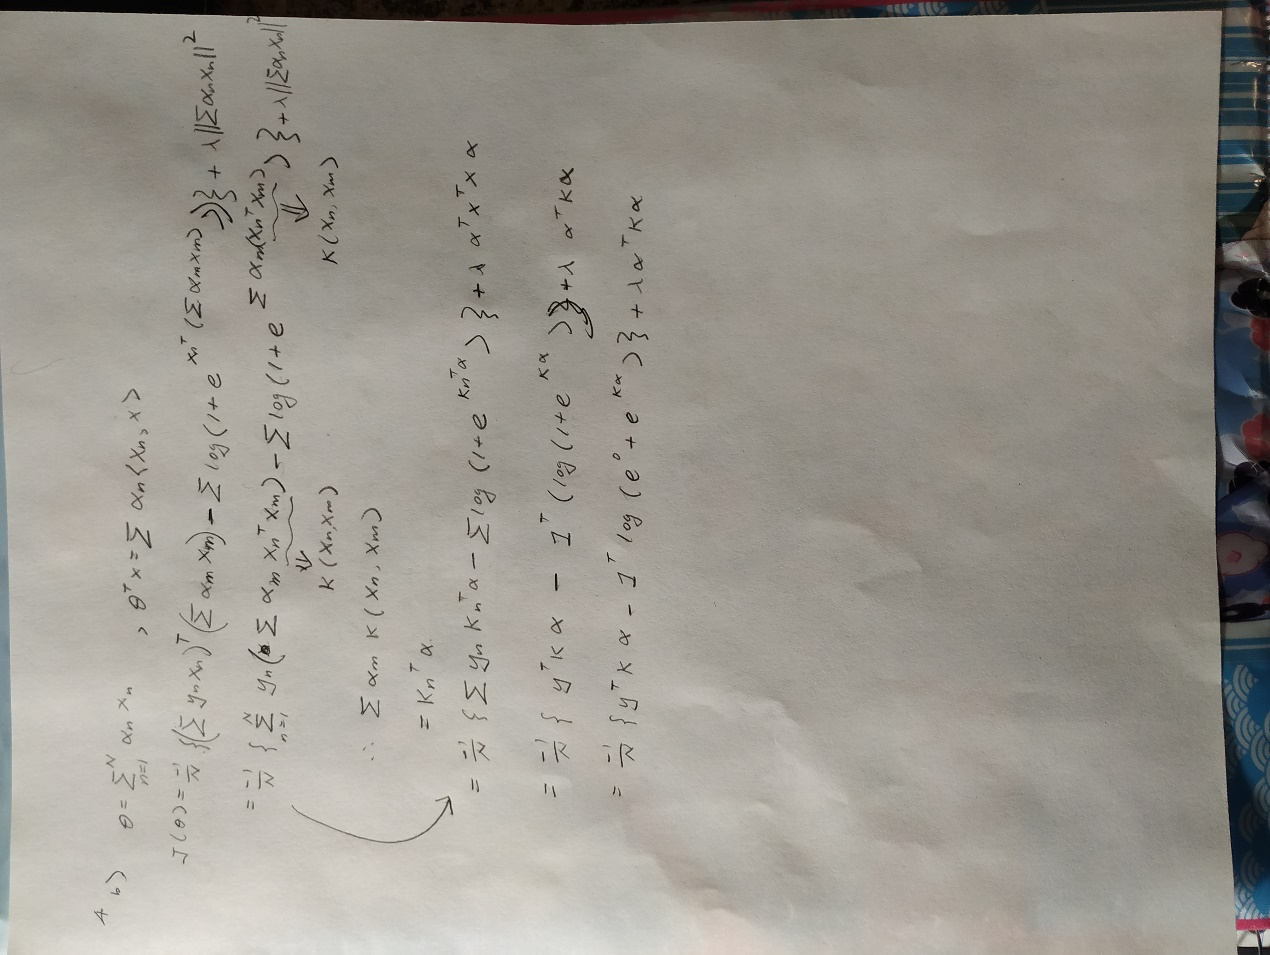 4
b) θ = Σ_{n=1}^{N} αn xn , θᵀx = Σ αn⟨xn, x⟩
J(θ) = -1/N {(Σ yn xn)ᵀ(Σ αm xm) - Σ log(1+e^{xnᵀ(Σ αm xm)})} + λ||Σ αn xn||²
= -1/N {Σ_{n=1}^{N} yn(Σ αm xnᵀ xm) - Σ log(1+e^{Σ αm(xnᵀ xm)})} + λ||Σ αn xn||²
⇓ ⇓
K(xn, xm) K(xn, xm)
∴ Σ αm K(xn, xm)
= Knᵀ α
= -1/N {Σ yn Knᵀα - Σ log(1+e^{Knᵀα})} + λ αᵀxᵀxα
= -1/N {yᵀKα - 1ᵀ(log(1+e^{Kα})} + λ αᵀKα
= -1/N {yᵀKα - 1ᵀ log(e⁰+e^{Kα})} + λαᵀKα